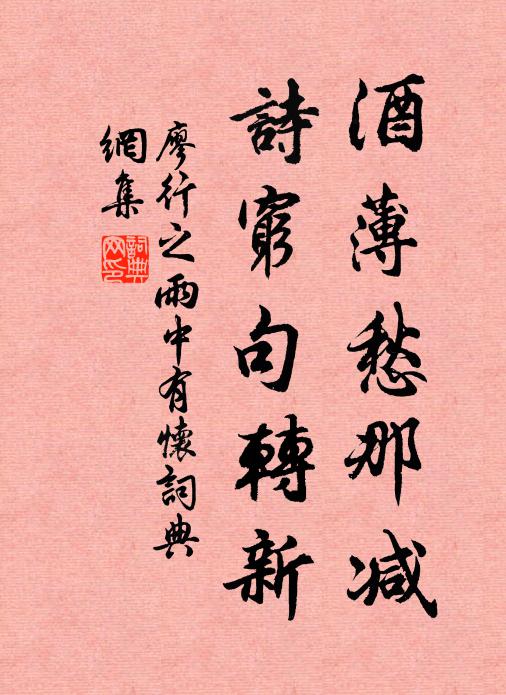 酒薄愁那减
詩窮句轉新
廖行之雨中有懷詞典
網集
詞典
网印